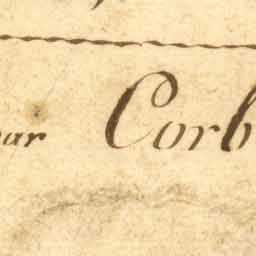 par Corb